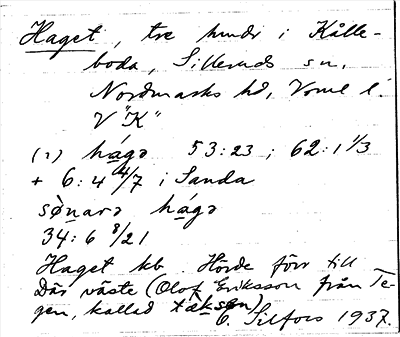 Haget, tre hmdr i Kålle-
boda, Silleruds sn,
Nordmarks hd, Vrml l.
V "K"
(1) hágə 53:23; 62:1 1/3
+ 6:4 4/7 i Sanda
sø̀narə hágə
34:6 8/21
Haget kb. Hörde förr till
Där väste (Olof Eriksson från Te-
gen, kallad tàksøn)
O. Silfors 1937.